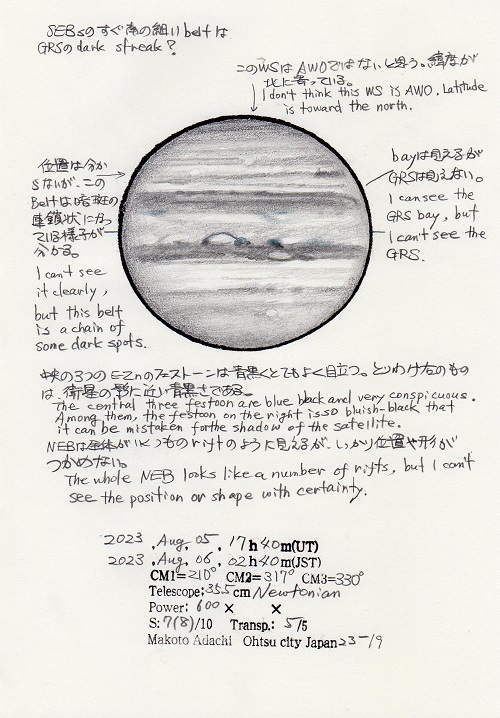 SEBsのすぐ南の細いbeltは
GRSのdark streak?
このWSはAWOではないと思う。緯度が
北に寄っている。
I don't think this WS is AWO, Latitude
is toward the north.
位置は分か
らないが、この
Beltは暗斑の
連鎖状になっ
ている様子が
分かる。
I can't see
it clearly,
but this belt
is a chain of
some dark spots.
bayは見えるが
GRSは見えない。
I can see the
GRS bay, but
I can't see the
GRS.
中央の3つのEZnのフェストーンは青黒くとてもよく目立つ。とりわけ右のもの
は、衛星の影に近い青黒さである。
The central three festoon are blue black and very conspicuous.
Among them, the festoon on the right is so bluish-black that
it can be mistaken for the shadow of the satellite.
NEBは全体がいくつものriftのように見えるが、しっかり位置や形が
つかめない。
The whole NEB looks like a number of rifts, but I can't
see the position or shape with certainty.
2023 , Aug, 05 , 17h40m(UT)
2023 , Aug, 06 , 02h40m(JST)
CM1=210° CM2=317° CM3=330°
Telescope;35.5cm Newtonian
Power: 600 × ×
S:7(8)/10 Transp.: 5/5
Makoto Adachi Ohtsu city Japan 23-19